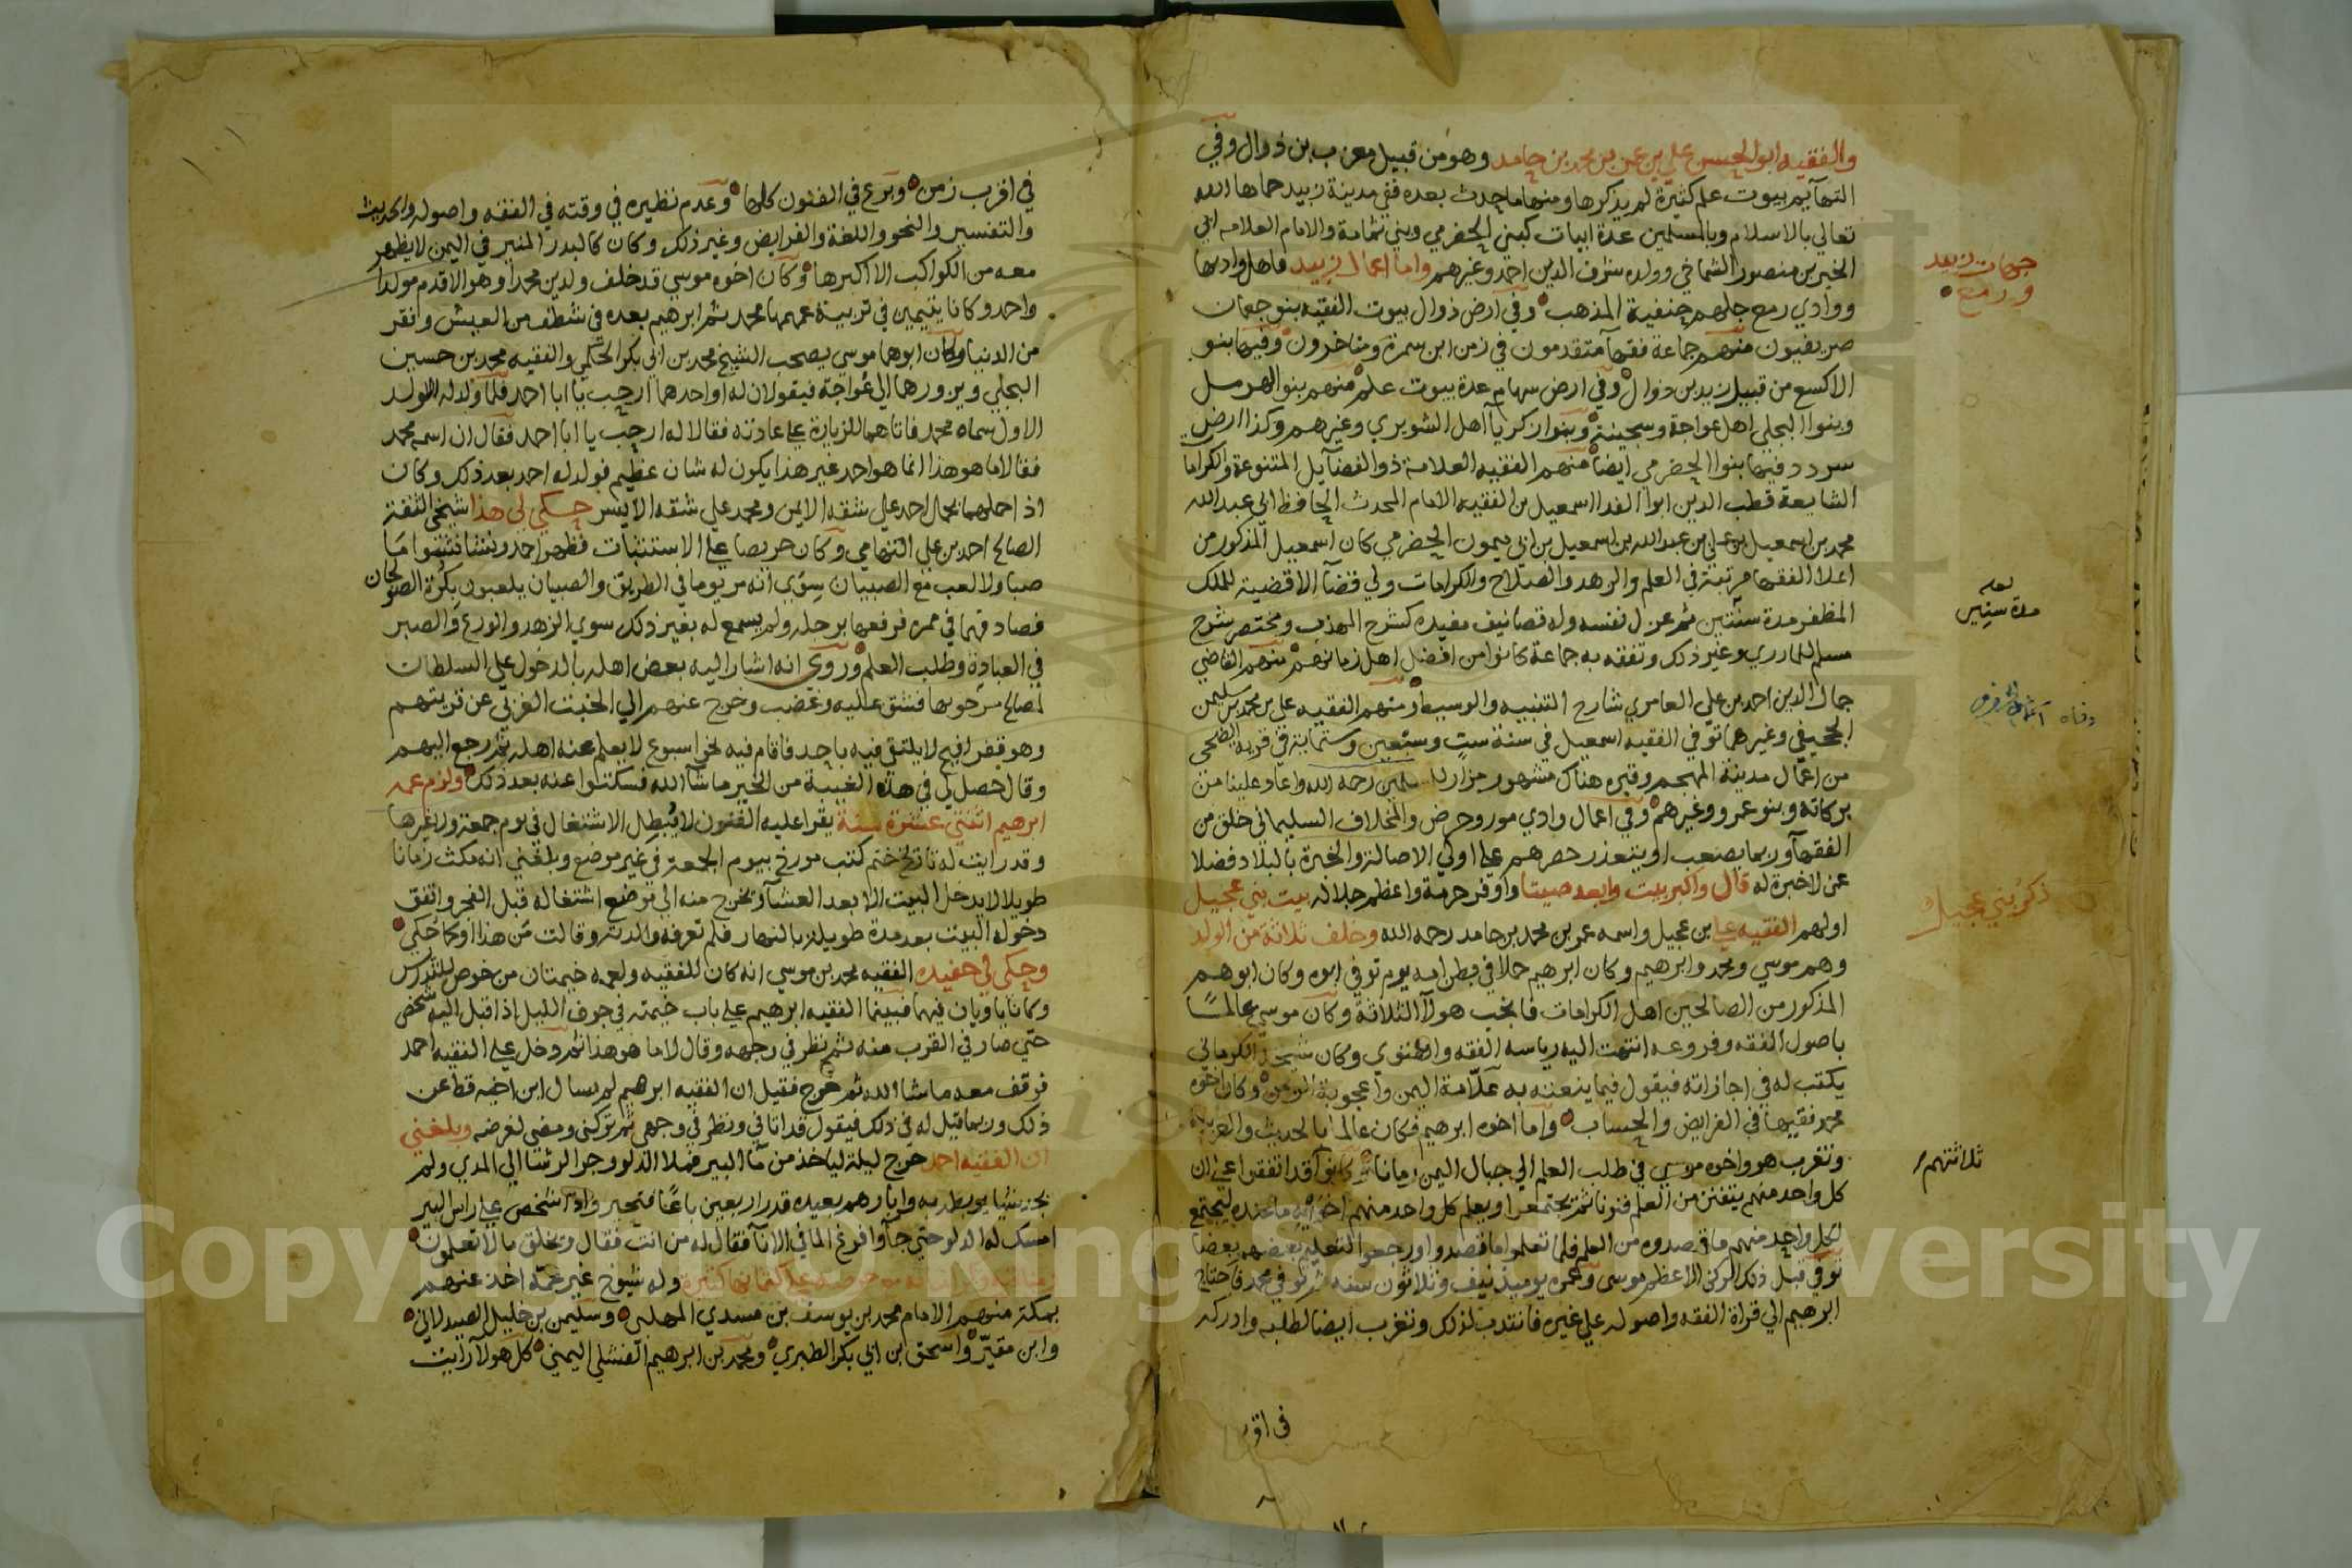 والفقيه ابو الحسن علي بن عمر بن محمد بن حامد وهو من قبيل معزب بن ذوال وفي
التهآيم بيوت علم كثيرة لم يذكرها ومنها ما حدث بعده ففي مدينة زبيد حماها الله
تعالي بالاسلام وبالمسلمين عدة ابيات كبني الحضرمي وبني ثمامة والامام العلامه ابي
الخير بن منصور الشماخي وولده شرف الدين احمد وغيرهم واما اعمال زبيد فاهل واديها
جهات زبيد
ورمع
ووادي رمع جلهم حنفية المذهب وفي ارض ذوال بيوت الفقيه بنو جعمان
صريفيون منهم جماعة فقهآ متقدمون في زمن ابن سمرة ومتاخرون وفيها بنو
الاكسع من قبيل زيد بن ذوال وفي ارض سهام عدة بيوت علم منهم بنو الهرمل
وبنوا البجلي اهل عواجة وسجينة وبنوا زكريآ اهل الشويري وغيرهم وكذا ارض
سردد فيها بنوا الحضرمي ايضا منهم الفقيه العلامة ذو الفضآيل المتنوعة والكراما
الشايعة قطب الدين ابوا الفدا اسمعيل بن الفقيه الامام المحدث الحافظ ابي عبد الله
محمد بن اسمعيل بن علي بن عبد الله بن اسمعيل بن ابي ميمون الحضرمي كان اسمعيل المذكور من
اعلا الفقها مرتبة في العلم والزهد والصلاح والكرامات ولي قضآ الاقضية للملك
لعله
مدة سنين
المظفر مدة سنتين ثم عزل نفسه وله تصانيف مفيده كشرح المهذب ومختصر شرح
مسلم للمازري وغير ذلك وتفقه به جماعة كانوا من افضل اهل زمانهم منهم القاضي
جمال الدين احمد بن علي العامري شارح التنبيه والوسيط ومنهم الفقيه علي بن محمد بن سليمن
الجحيفي وغيرهما توفي الفقيه اسمعيل في سنة ست وستعين وستماية في قرية الضحي
من اعمال مدينة المهجم وقبره هناك مشهور مزار رحمه الله واعاد علينا من
بركاته وبنو عمرو وغيرهم وفي اعمال وادي مور وحرض والمخلاف السليماني خلق من
الفقهآ وربما يصعب او يتعذر حصرهم علي اولي الاصالة والخبرة بالبلاد فضلا
عن لا خبرة له قال واكبر بيت وابعد صيتا واوفر حرمة واعظم جلاله بيت بني عجيل
ذكر بني عجيل
اولهم الفقيه علي بن عجيل واسمه عمر بن محمد بن حامد رحمه الله وخلف ثلاثة من الولد
وهم موسي ومحمد وابرهيم وكان ابرهيم حملا في بطن امه يوم توفي ابوه وكان ابوهم
المذكور من الصالحين اهل الكرامات فانجب هولآ الثلاثة وكان موسي عالما
باصول الفقه وفروعه انتهت اليه رياسه الفقه والفتوي وكان شيخه الكرماني
يكتب له في اجازاته فيقول فيما ينعته به علامة اليمن واعجوبة الزمن وكان اخوه
محمد فقيها في الفرايض والحساب واما اخوه ابرهيم فكان عالما بالحديث والعربية
وتغرب هو واخوه موسي في طلب العلم الي جبال اليمن زمانا كانوا قد اتفقوا علي ان
ثلاثتهم
كل واحد منهم يتفنن من العلم فنونا ثم يجتمعوا ويعلم كل واحد منهم اخوته ما عنده ليجتمع
لكل واحد منهم ما قصدوه من العلم فلما تعلموا ما قصدوا ورجعوا لتعليم بعضهم بعضا
توفي قبل ذلك الركن الاعظم موسي وعمره يوميذ نيف وثلاثون سنه ثم توفي محمد فاحتاج
ابرهيم الي قراة الفقه واصوله علي غيره فانتدب لذلك وتغرب ايضا لطلبه وادركه
في اقر
في اقرب زمن وبرع في الفنون كلها وعدم نظيره في وقته في الفقه واصوله والحديث
والتفسير والنحو واللغة والفرايض وغير ذلك وكان كالبدر المنير في اليمن لا يظهر
معه من الكواكب الا اكبرها وكان اخوه موسي قد خلف ولدين محمدا وهو الاقدم مولدا
واحمد وكانا يتيمين في تربية عمهما محمد ثم ابرهيم بعده في شظف من العيش وانقر
من الدنيا وكان ابوهما موسي يصحب الشيخ محمد بن ابي بكر الحكمي والفقيه محمد بن حسين
البجلي ويزورهما الي عواجة فيقولان له او احدهما ارحب يا ابا احمد فلما ولد له الولد
الاول سماه محمد فاتاهما للزيارة علي عادته فقالا له ارحب يا ابا احمد فقال ان اسمه محمد
فقالا ما هو هذا انما هو احمد غير هذا يكون له شان عظيم فولد له احمد بعد ذلك وكان
اذا حملهما يحمل احمد علي شقه الايمن ومحمد علي شقه الايسر حكي لي هذا شيخي الثقة
الصالح احمد بن علي التهامي وكان حريصا علي الاستثبات فظهر احمد ونشا نشوا ما
صبا ولا لعب مع الصبيان سوي انه مر يوما في الطريق والصبيان يلعبون بكرة الصولجان
فصادفها في ممره فرفعها برجله ولم يسمع له بغير ذلك سوي الزهد والورع والصبر
في العبادة وطلب العلم وروي انه اشار اليه بعض اهله بالدخول علي السلطان
لمصالح يرجونها فشق عليه وغضب وخرج عنهم الي الخبت الغربي عن قريتهم
وهو قفر افيح لا يلتقي فيه باحد فاقام فيه نحو اسبوع لا يعلم عنه اهله ثم رجع اليهم
وقال حصل لي في هذه الغيبة من الخير ما شآ الله فسكتوا عنه بعد ذلك ولزم عمه
ابرهيم اثنتي عشرة سنة يقرا عليه الفنون لا يبطل الاشتغال في يوم جمعة ولا غيرها
وقد رايت له تاريخ ختم كتب مورخ بيوم الجمعة في غير موضع وبلغني انه مكث زمانا
طويلا لا يدخل البيت الا بعد العشآ ويخرج منه الي موضع اشتغاله قبل الفجر واتفق
دخوله البيت بعد مدة طويلة بالنهار فلم تعرفه والدته وقالت من هذا او كما حكي
وحكي لي حفيده الفقيه محمد بن موسي انه كان للفقيه ولعمه خيمتان من خوص للتدرس
وكانا ياويان فيهما فبينما الفقيه ابرهيم علي باب خيمته في جوف الليل اذ اقبل اليه شخص
حتي صار في القرب منه ثم نظر في وجهه وقال لا ما هو هذا ثم دخل علي الفقيه احمد
فوقف معه ما شا الله ثم خرج فقيل ان الفقيه ابرهيم لم يسال ابن اخيه قط عن
ذلك وربما قيل له في ذلك فيقول قد اتاني ونظر في وجهي ثم تركني ومضي لغرضه وبلغني
ان الفقيه احمد خرج ليلة لياخذ من مآ البير فملا الدلو وجر الرشا الي المدي ولم
يجد شيا يربط به وابارهم بعيده قدر اربعين باعا فتحير شخص علي راس البير
امسك له الدلو حتي جآ وافرغ المآ في الانآ فقال له من انت فقال ويخلق ما لا تعلمون
وله شيوخ غير عمه اخذ عنهم
بمكة منهم الامام محمد بن يوسف بن مسدي المهلبي وسليمن بن خليل
واسحق ابن ابي بكر الطبري ومحمد بن ابرهيم الفشلي اليمني كل هولآ رايت